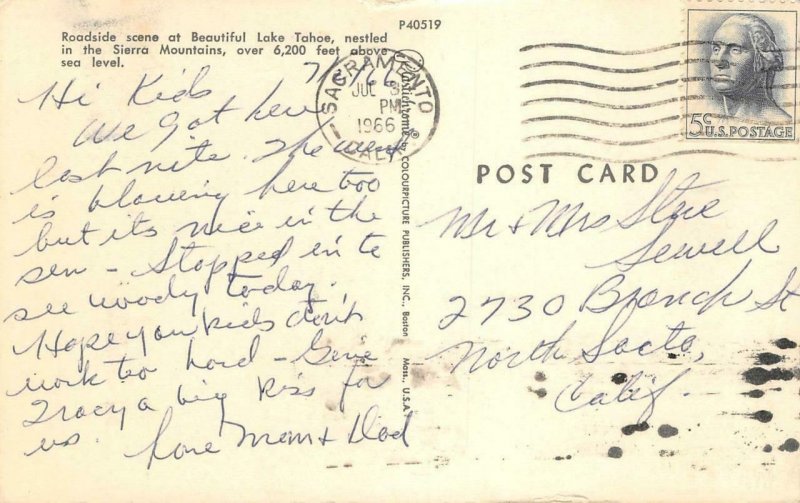 P40519
Roadside scene at Beautiful Lake Tahoe, nestled
in the Sierra Mountains, over 6,200 feet above
sea level.
Hi Kids
We got here
last nite. The wind
is blowing here too
but its nice in the
sun - Stopped in to
see woody today.
Hope you kids don't
work too hard - Give
Tracy a big kiss for
us. Love Mom & Dad
SACRAMENTO
JUL 3
PM
1966
CALIF
Plastichrome® by COLOURPICTURE PUBLISHERS, INC., Boston Mass., U.S.A.
5c U.S. POSTAGE
POST CARD
Mr & Mrs Steve
Sewell
2730 Branch St
North Sacto,
Calif.